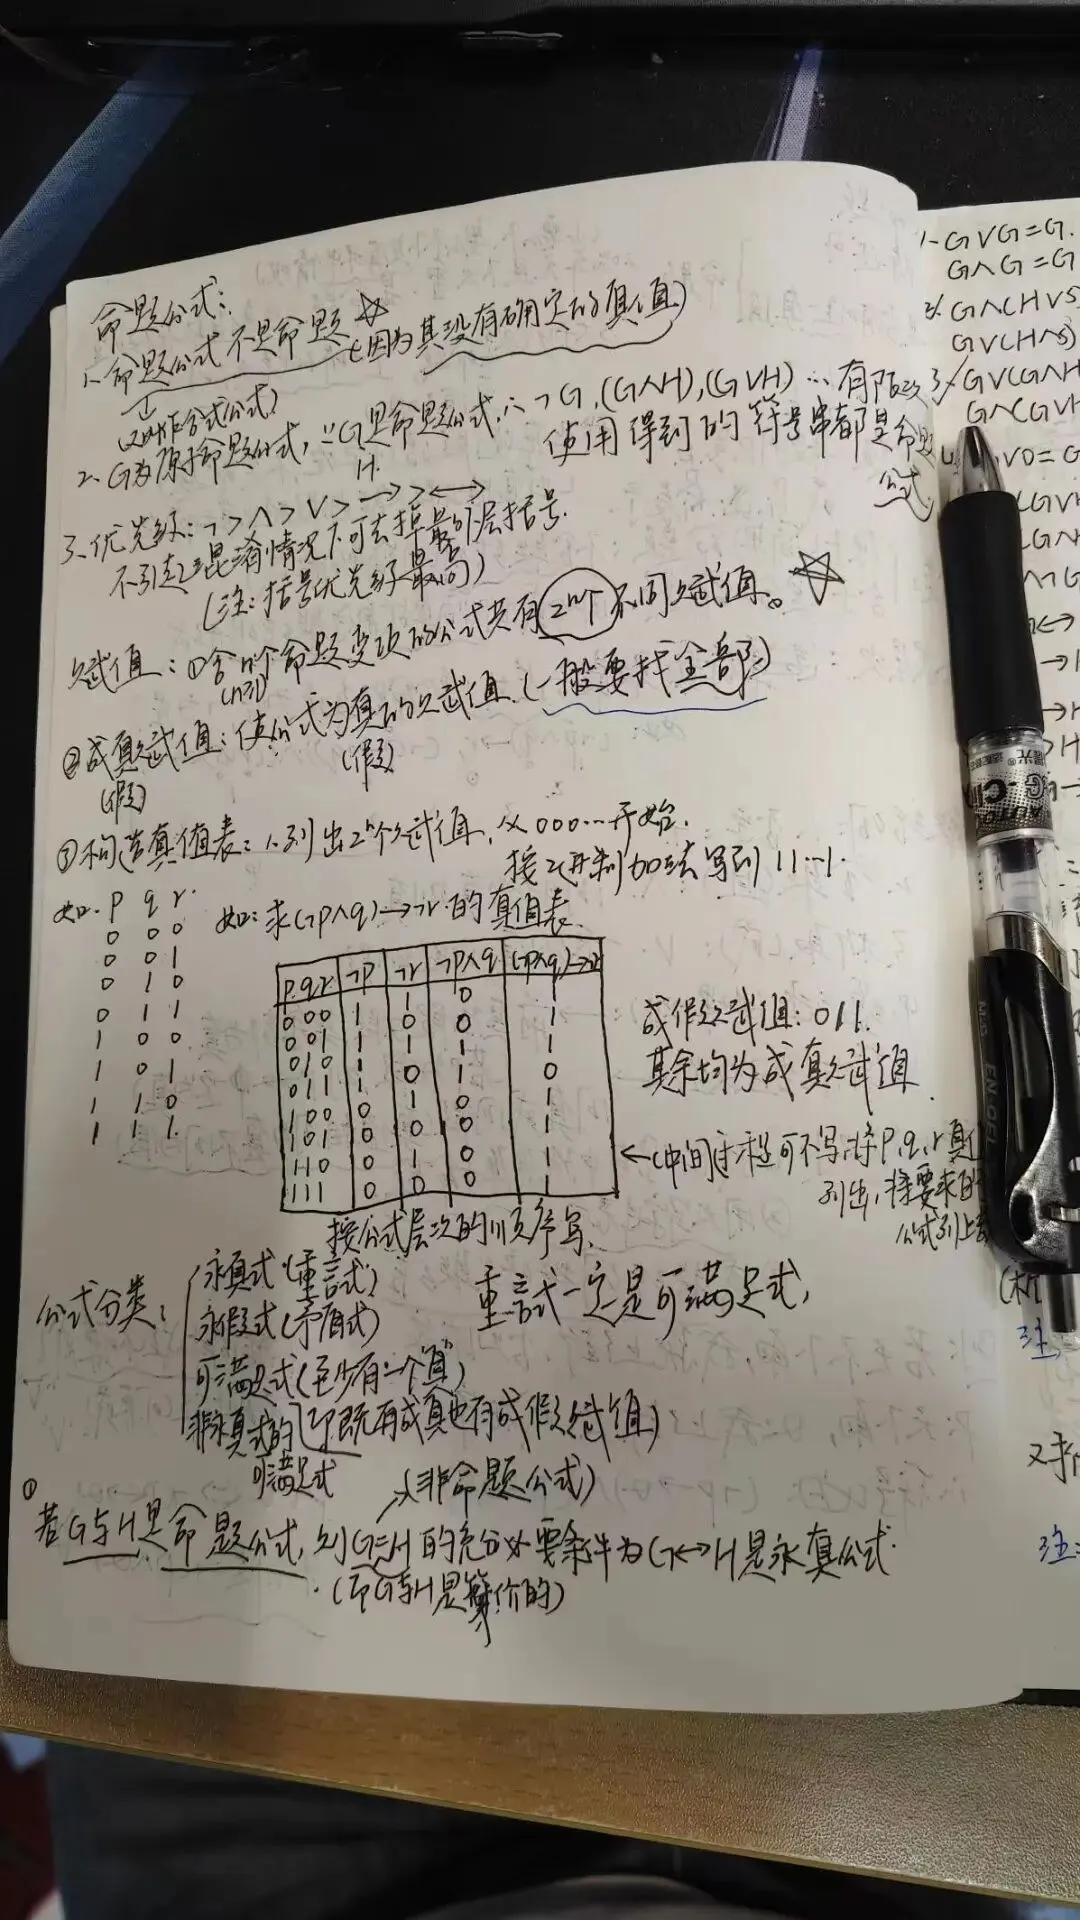 命题公式:
1、命题公式不是命题 (因为其没有确定的真值)
(又叫作合式公式)
2、G为原子命题公式, ∵G是命题公式, ∴¬G, (G∧H), (G∨H) … 有限次
H
使用得到的符号串都是命题
公式
3、优先级: ¬>∧>∨>→>↔
不引起混淆情况下可去掉最外层括号.
(注: 括号优先级最高)
赋值: ①含n个命题变项的公式共有2ⁿ个不同赋值。
(n≥1)
②成真赋值: 使公式为真的赋值. (一般要找全部)
(假) (假)
③构造真值表: 1.列出2ⁿ个赋值, 从000…开始.
按2进制加法写到11…1.
如. p q r.
0 0 0
0 0 1
0 1 0
0 1 1
1 0 0
1 0 1
1 1 0
1 1 1.
如: 求(¬p∧q)→¬r 的真值表.
p q r ¬p ¬r ¬p∧q (¬p∧q)→¬r
000 1 1 0 1
001 1 0 0 1
010 1 1 1 1
011 1 0 1 0
100 0 1 0 1
101 0 0 0 1
110 0 1 0 1
111 0 0 0 1
成假赋值: 011.
其余均为成真赋值.
←(中间过程可不写,将p,q,r真值
列出, 将要求的
公式列上
按公式层次的顺序写.
公式分类:
永真式(重言式)
永假式(矛盾式)
可满足式(至少有一个"真")
非永真式的
可满足式
(即既有成真也有成假赋值)
重言式一定是可满足式,
(非命题公式)
①
若G与H是命题公式, 则G≡H的充分必要条件为G↔H是永真公式.
(即G与H是等价的)
1、G∨G=G.
G∧G=G
2、G∧(H∨S
G∨(H∧S)
3、G∨(G∧H
G∧(G∨H
∨0=G
(G∨H
(G∧H
¬G
注
注: